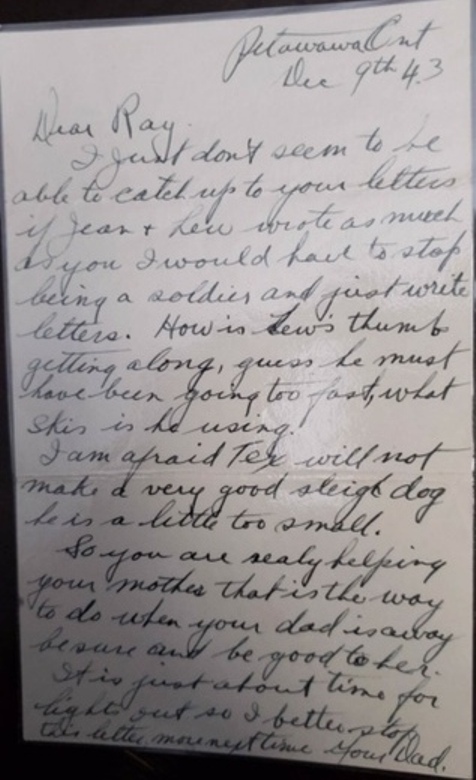 Petawawa Ont
Dec 9th 43
Dear Ray.
I just don't seem to be
able to catch up to your letters
if Jean + Lew wrote as much
as you I would have to stop
being a soldier and just write
letters. How is Lew's thumb
getting along, guess he must
have been going too fast, what
skis is he using.
I am afraid Tex will not
make a very good sleigh dog
he is a little too small.
So you are realy helping
your mother that is the way
to do when your dad is away
be sure and be good to her.
It is just about time for
lights out so I better stop
this letter, more next time Your Dad.